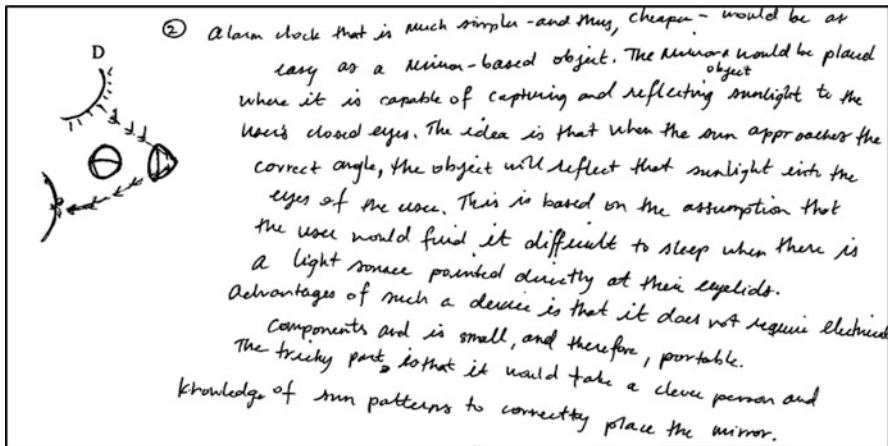 D
② Alarm clock that is much simpler - and thus, cheaper - would be as
easy as a mirror-based object. The mirror would be placed
object
where it is capable of capturing and reflecting sunlight to the
user's closed eyes. The idea is that when the sun approaches the
correct angle, the object will reflect that sunlight into the
eyes of the user. This is based on the assumption that
the user would find it difficult to sleep when there is
a light source pointed directly at their eyelids.
Advantages of such a device is that it does not require electrical
components and is small, and therefore, portable.
The tricky part is that it would take a clever person and
knowledge of sun patterns to correctly place the mirror.